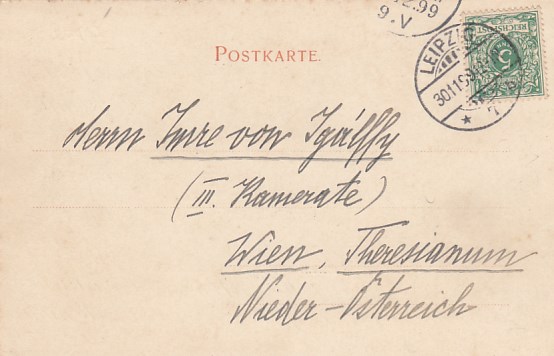 2.99
9.V
REICHSPOST
5
LEIPZIG
30.11.99
7
POSTKARTE.
Herrn Imre von Igálffy
(III. Kamerate)
Wien, Theresianum
Nieder-Österreich